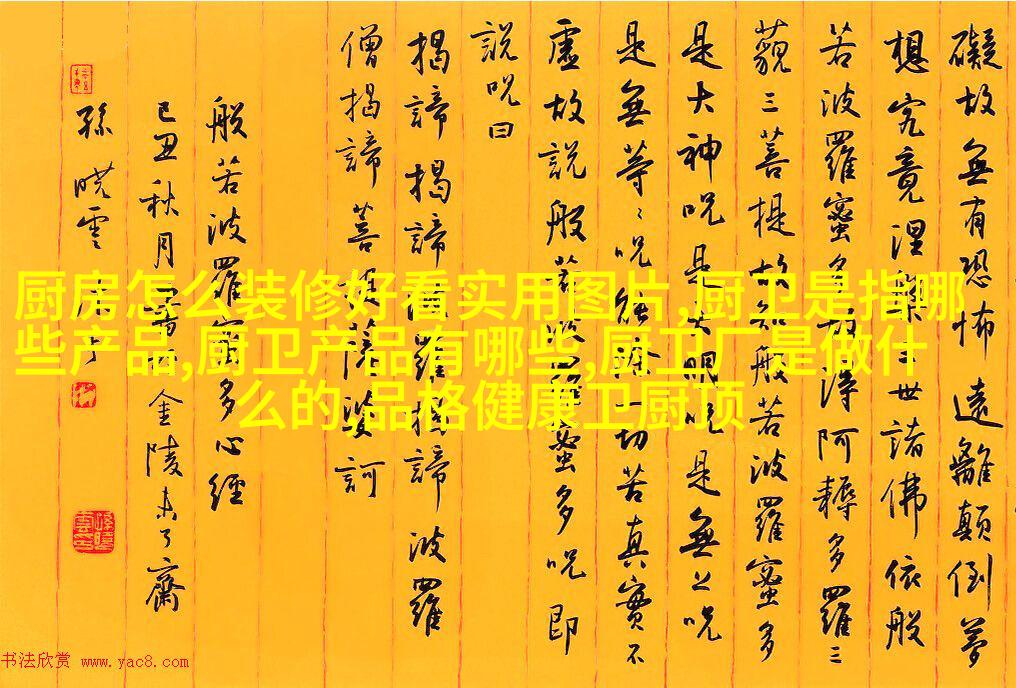 礙故無有恐怖遠離顛倒夢
想究竟涅槃三世諸佛依般
若波羅蜜多故得阿耨多羅三
藐三菩提故知般若波羅蜜多
是大神呪是大明呪是無上呪
是無等々呪能除一切苦真實不
虛故說般若波羅蜜多呪即
說呪曰
揭諦揭諦波羅揭諦波羅
僧揭諦菩提薩婆訶
般若波羅蜜多心經
己丑秋月金陵未了齋
孫曉雲
厨房怎么装修好看实用图片,厨卫是指哪
些产品,厨卫产品有哪些,厨卫厂是做什
么的,品格健康卫厨顶
书法欣赏 www.yac8.com